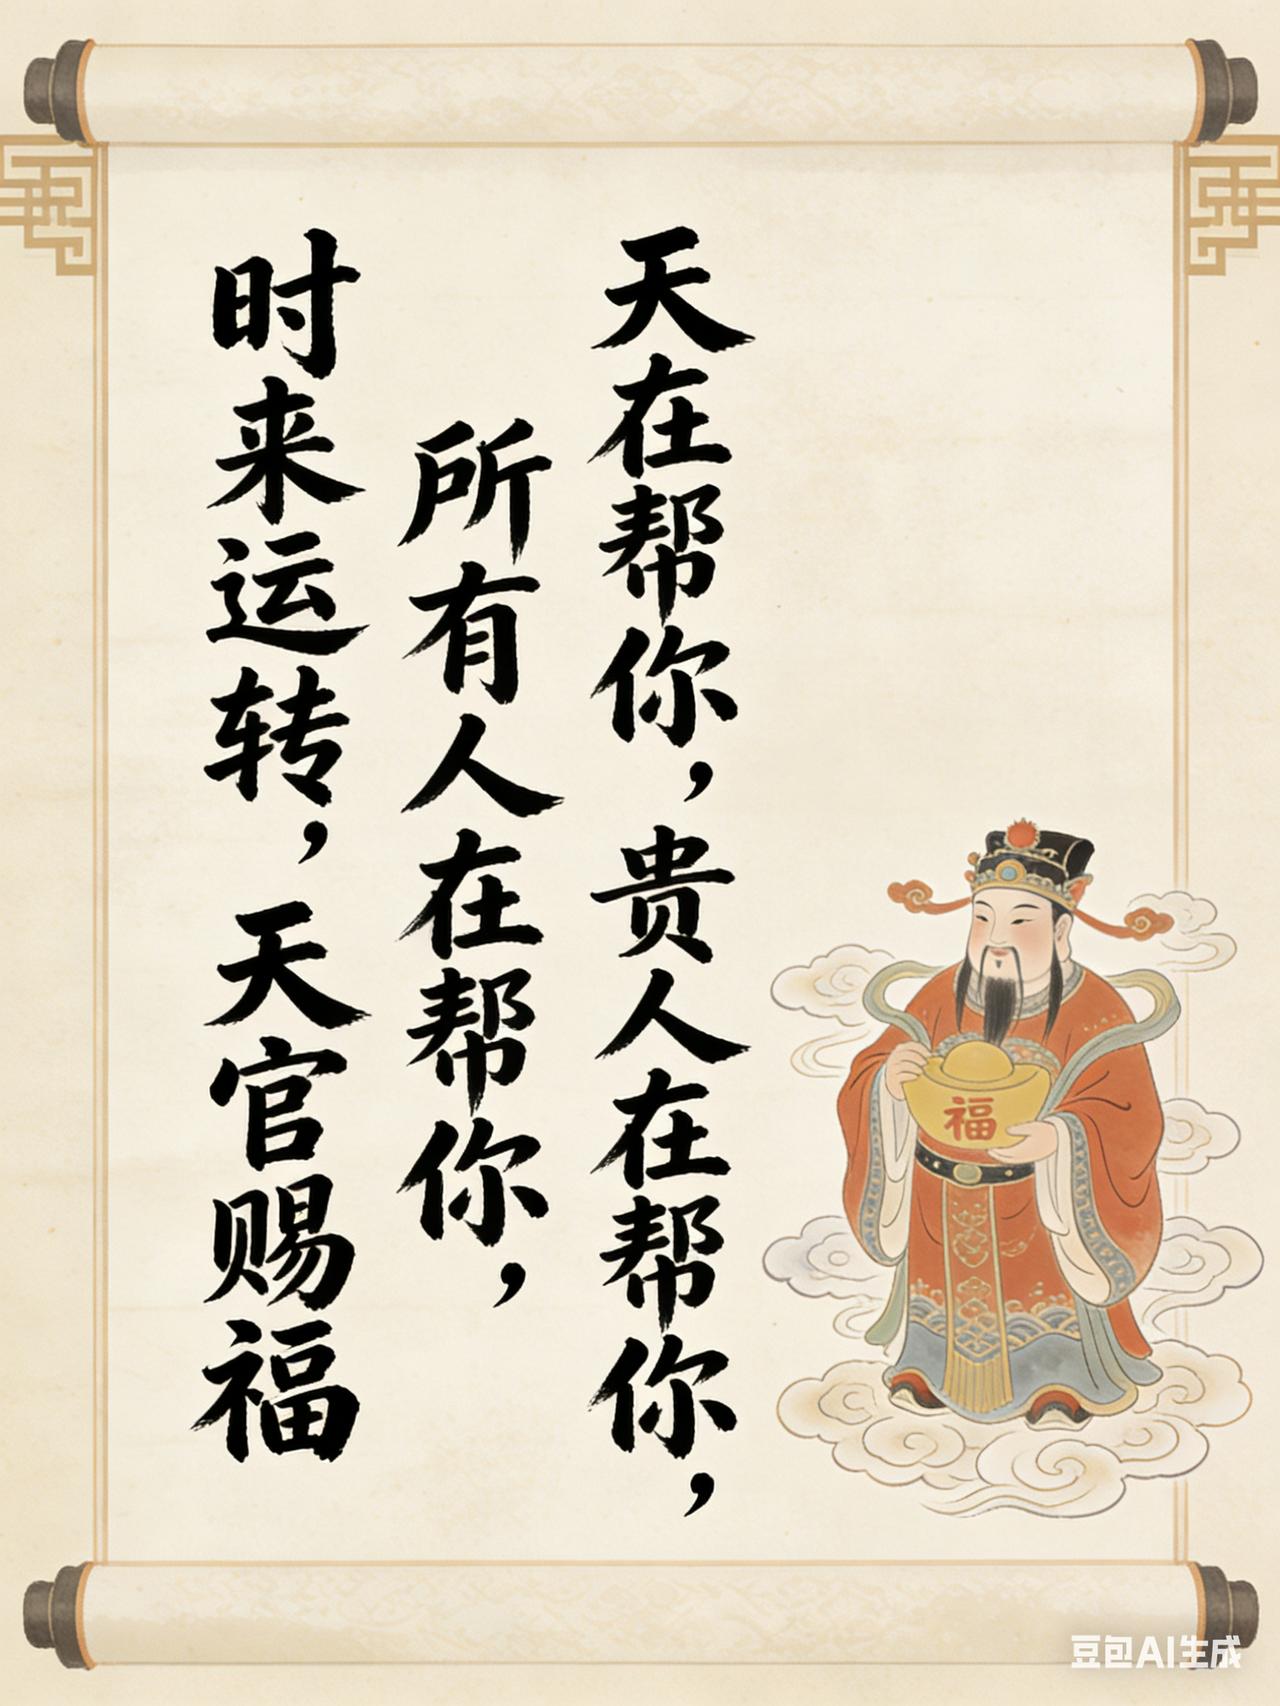 天在帮你，贵人在帮你，
所有人在帮你，
时来运转，天官赐福
福
豆包AI生成